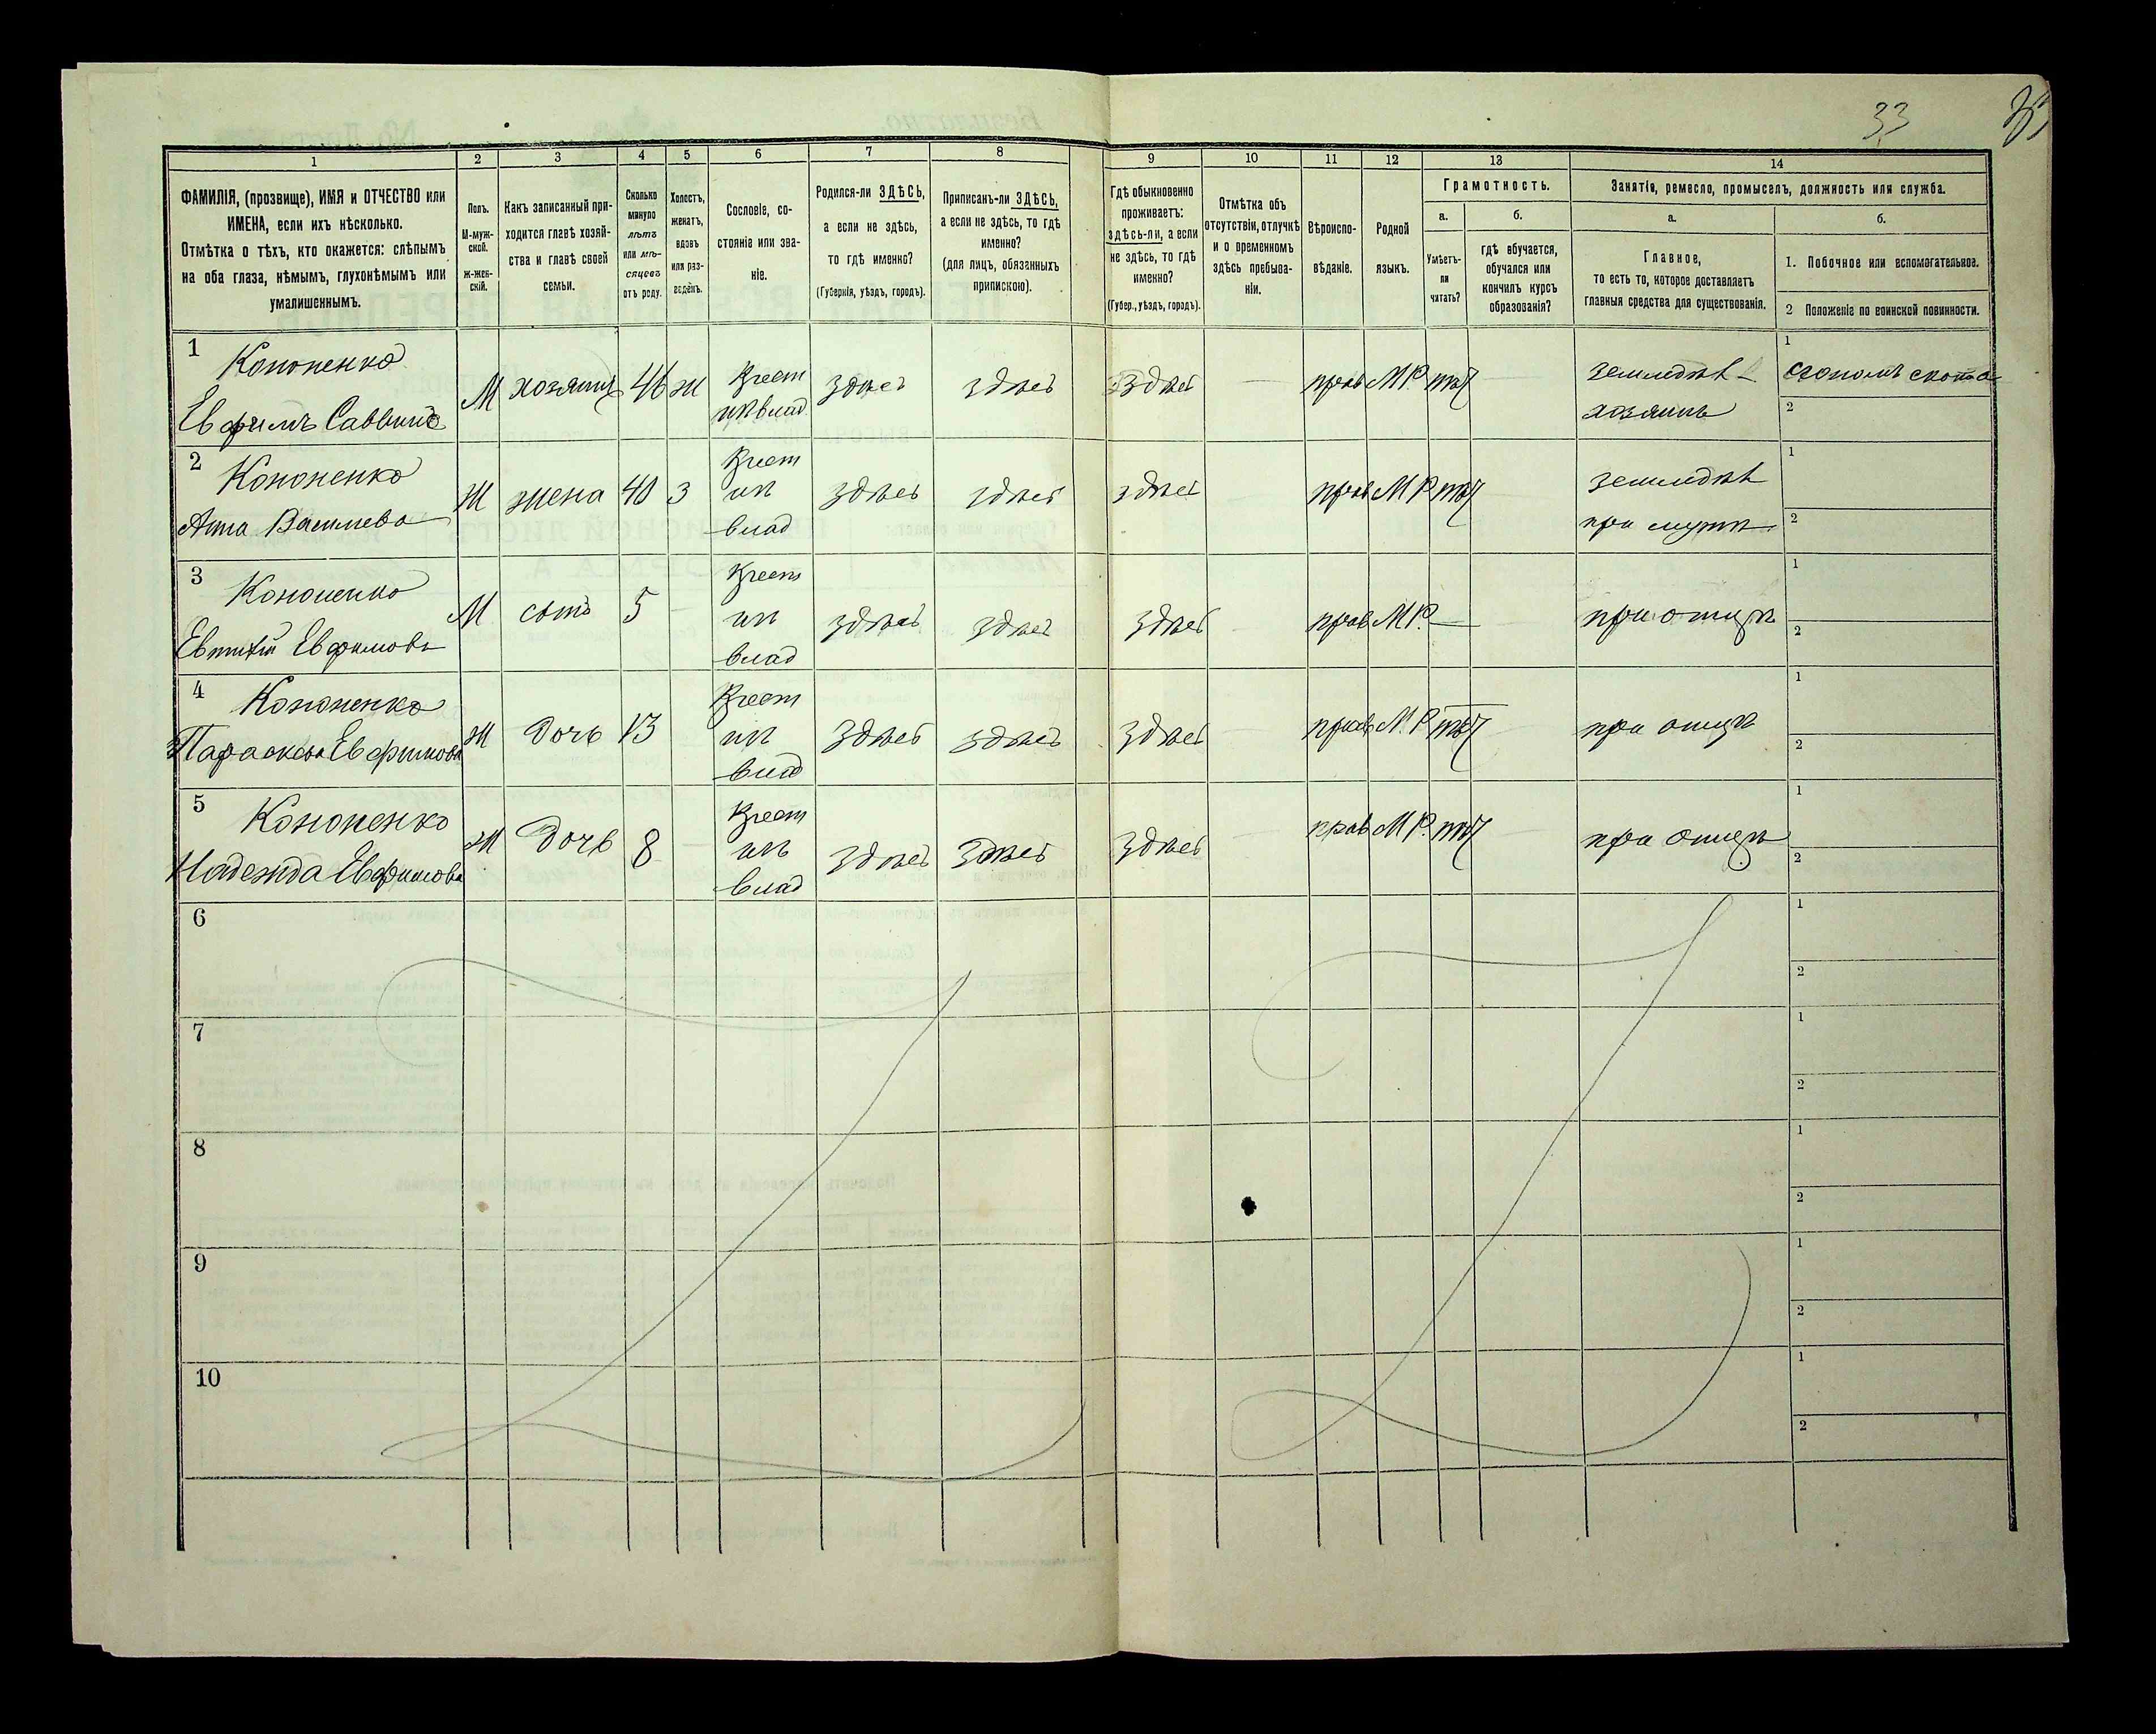 33
1
2
3
4
5
6
7
8
9
10
11
12
13
14
ФАМИЛІЯ, (прозвище), ИМЯ и ОТЧЕСТВО или
ИМЕНА, если ихъ нѣсколько.
Отмѣтка о тѣхъ, кто окажется: слѣпымъ
на оба глаза, нѣмымъ, глухонѣмымъ или
умалишеннымъ.
Полъ.
М-муж-
ской.
Ж-жен-
скій.
Какъ записанный при-
ходится главѣ хозяй-
ства и главѣ своей
семьи.
Сколько
минуло
лѣтъ
или мѣ-
сяцевъ
отъ роду.
Холостъ,
женатъ,
вдовъ
или раз-
веденъ.
Сословіе, со-
стояніе или зва-
ніе.
Родился-ли ЗДѢСЬ,
а если не здѣсь,
то гдѣ именно?
(Губернія, уѣздъ, городъ).
Приписанъ-ли ЗДѢСЬ,
а если не здѣсь, то гдѣ
именно?
(для лицъ, обязанныхъ
припискою).
Гдѣ обыкновенно
проживаетъ:
здѣсь-ли, а если
не здѣсь, то гдѣ
именно?
(Губер., уѣздъ, городъ).
Отмѣтка объ
отсутствіи, отлучкѣ
и о временномъ
здѣсь пребыва-
ніи.
Вѣроиспо-
вѣданіе.
Родной
языкъ.
Грамотность.
а.
Умѣетъ-
ли
читать?
б.
гдѣ обучается,
обучался или
кончилъ курсъ
образованія?
Занятія, ремесло, промыселъ, должность или служба.
а.
Главное,
то есть то, которое доставляетъ
главныя средства для существованія.
б.
1. Побочное или вспомогательное.
2 Положеніе по воинской повинности.
1
Кононенко
Евфимъ Саввинъ
М
хозяинъ
46
ж
Крест
изъ влад
здѣсь
здѣсь
здѣсь
прав
М.Р.
нѣт
земледѣл-
хозяинъ
1
скота
2
2
Кононенко
Анна Васильева
Ж
жена
40
З
Крест
изъ
влад
здѣсь
здѣсь
здѣсь
прав
М.Р.
нѣт
земледѣл
при мужѣ
1
2
3
Кононенко
Евфимовъ
М
сынъ
5
Крест
изъ
влад
здѣсь
здѣсь
здѣсь
прав
М.Р.
при отцѣ
1
2
4
Кононенко
Параскева Евфимова
Ж
Дочь
13
Крест
изъ
влад
здѣсь
здѣсь
здѣсь
прав
М.Р.
нѣт
при отцѣ
1
2
5
Кононенко
Надежда Евфимова
Ж
Дочь
8
Крест
изъ
влад
здѣсь
здѣсь
здѣсь
прав
М.Р.
нѣт
при отцѣ
1
2
6
1
2
7
1
2
8
1
2
9
1
2
10
1
2